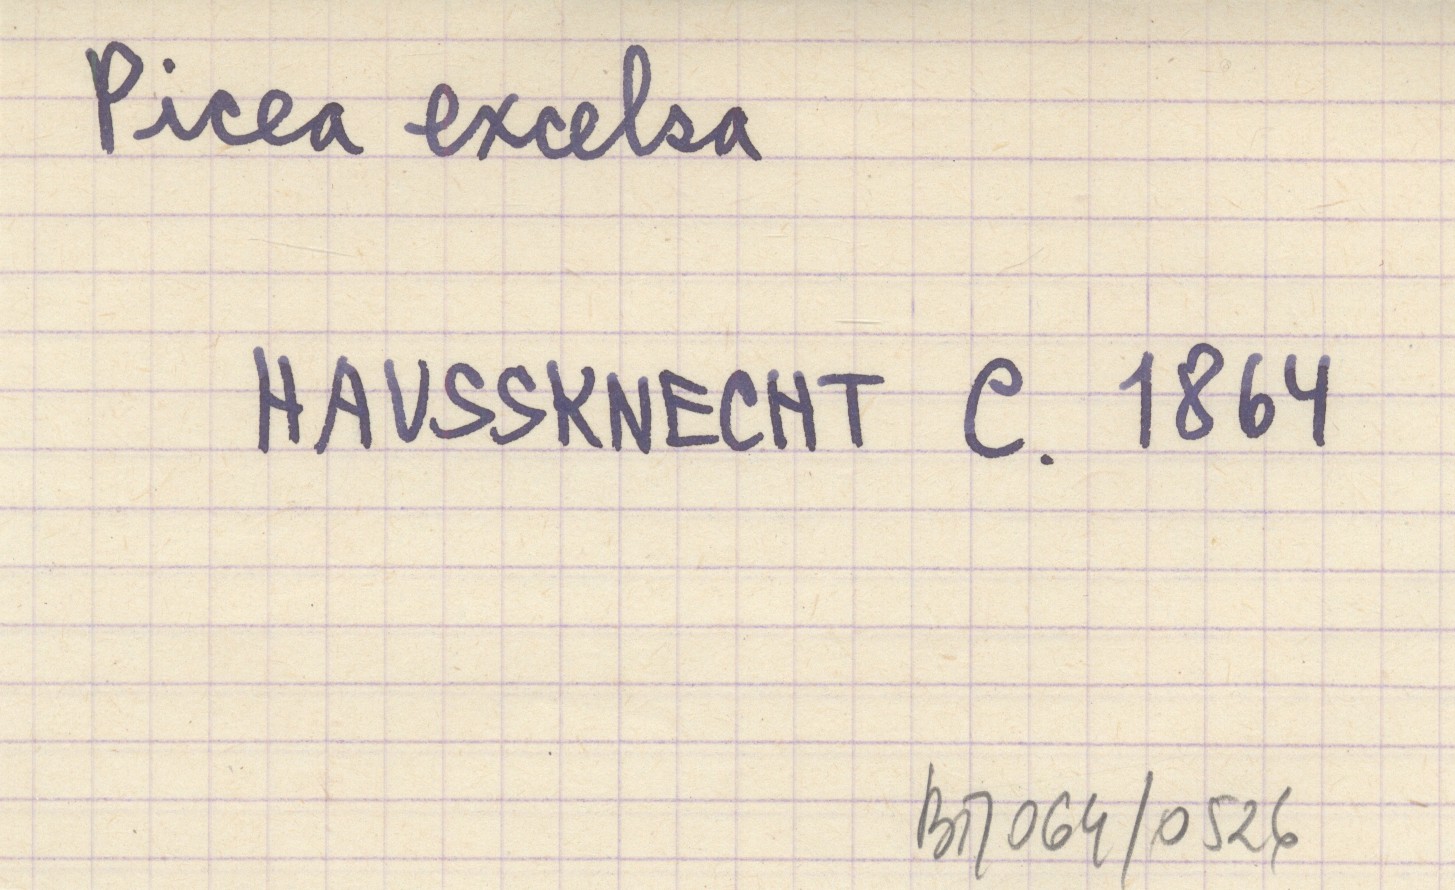 Picea excelsa
HAUSSKNECHT C. 1864
ВП064/0526